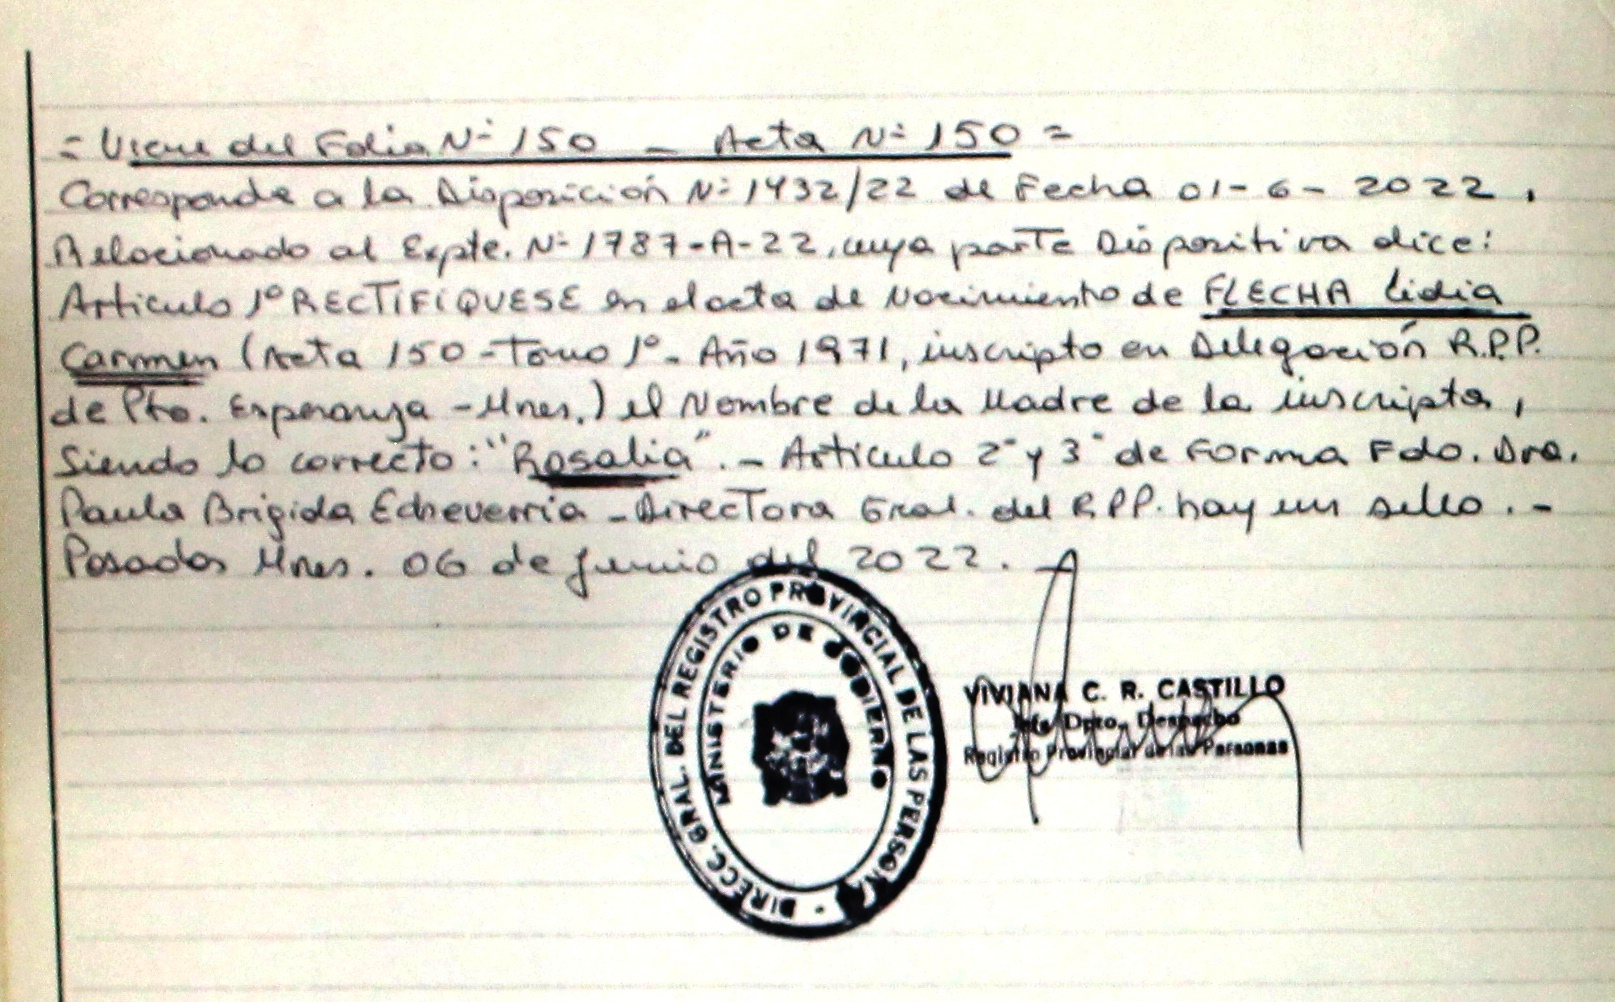 = Viene del Folio N° 150 - Acta N° 150 =
Corresponde a la Disposición N° 1432/22 de Fecha 01-6-2022.
Relacionado al Expte. N° 1787-A-22, cuya parte Dispositiva dice:
Articulo 1° RECTIFIQUESE en el acta de Nacimiento de FLECHA Lidia
Carmen (Acta 150 - Tomo 1° - Año 1971, inscripto en Delegación R.P.P.
de Pto. Esperanza - Mnes.) el Nombre de la Madre de la inscripta,
Siendo lo correcto: "Rosalia". - Articulo 2° y 3° de Forma Fdo. Dra.
Paula Brigida Echeverria - Directora Gral. del R.P.P. hay un sello. -
Posadas Mnes. 06 de Junio del 2022.
DIRECC. GRAL. DEL REGISTRO PROVINCIAL DE LAS PERSONAS
MINISTERIO DE GOBIERNO
VIVIANA C. R. CASTILLO
Jefe Dpto. Despacho
Registro Provincial de las Personas